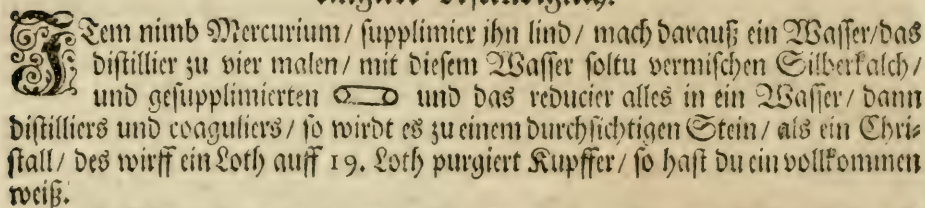 ITem nimb Mercurium/ supplimier jhn lind/ mach darauß ein Wasser/das
distillier zu vier malen/ mit diesem Wasser soltu vermischen Silberkalch/
und gesupplimierten und das reducier alles in ein Wasser/ dann
distilliers und coaguliers/ so wirdt es zu einem durchsichtigen Stein/ als ein Chri⸗
stall/ des wirff ein Loth auff 19. Loth purgiert Kupffer/ so hast du ein vollkommen
weiß.